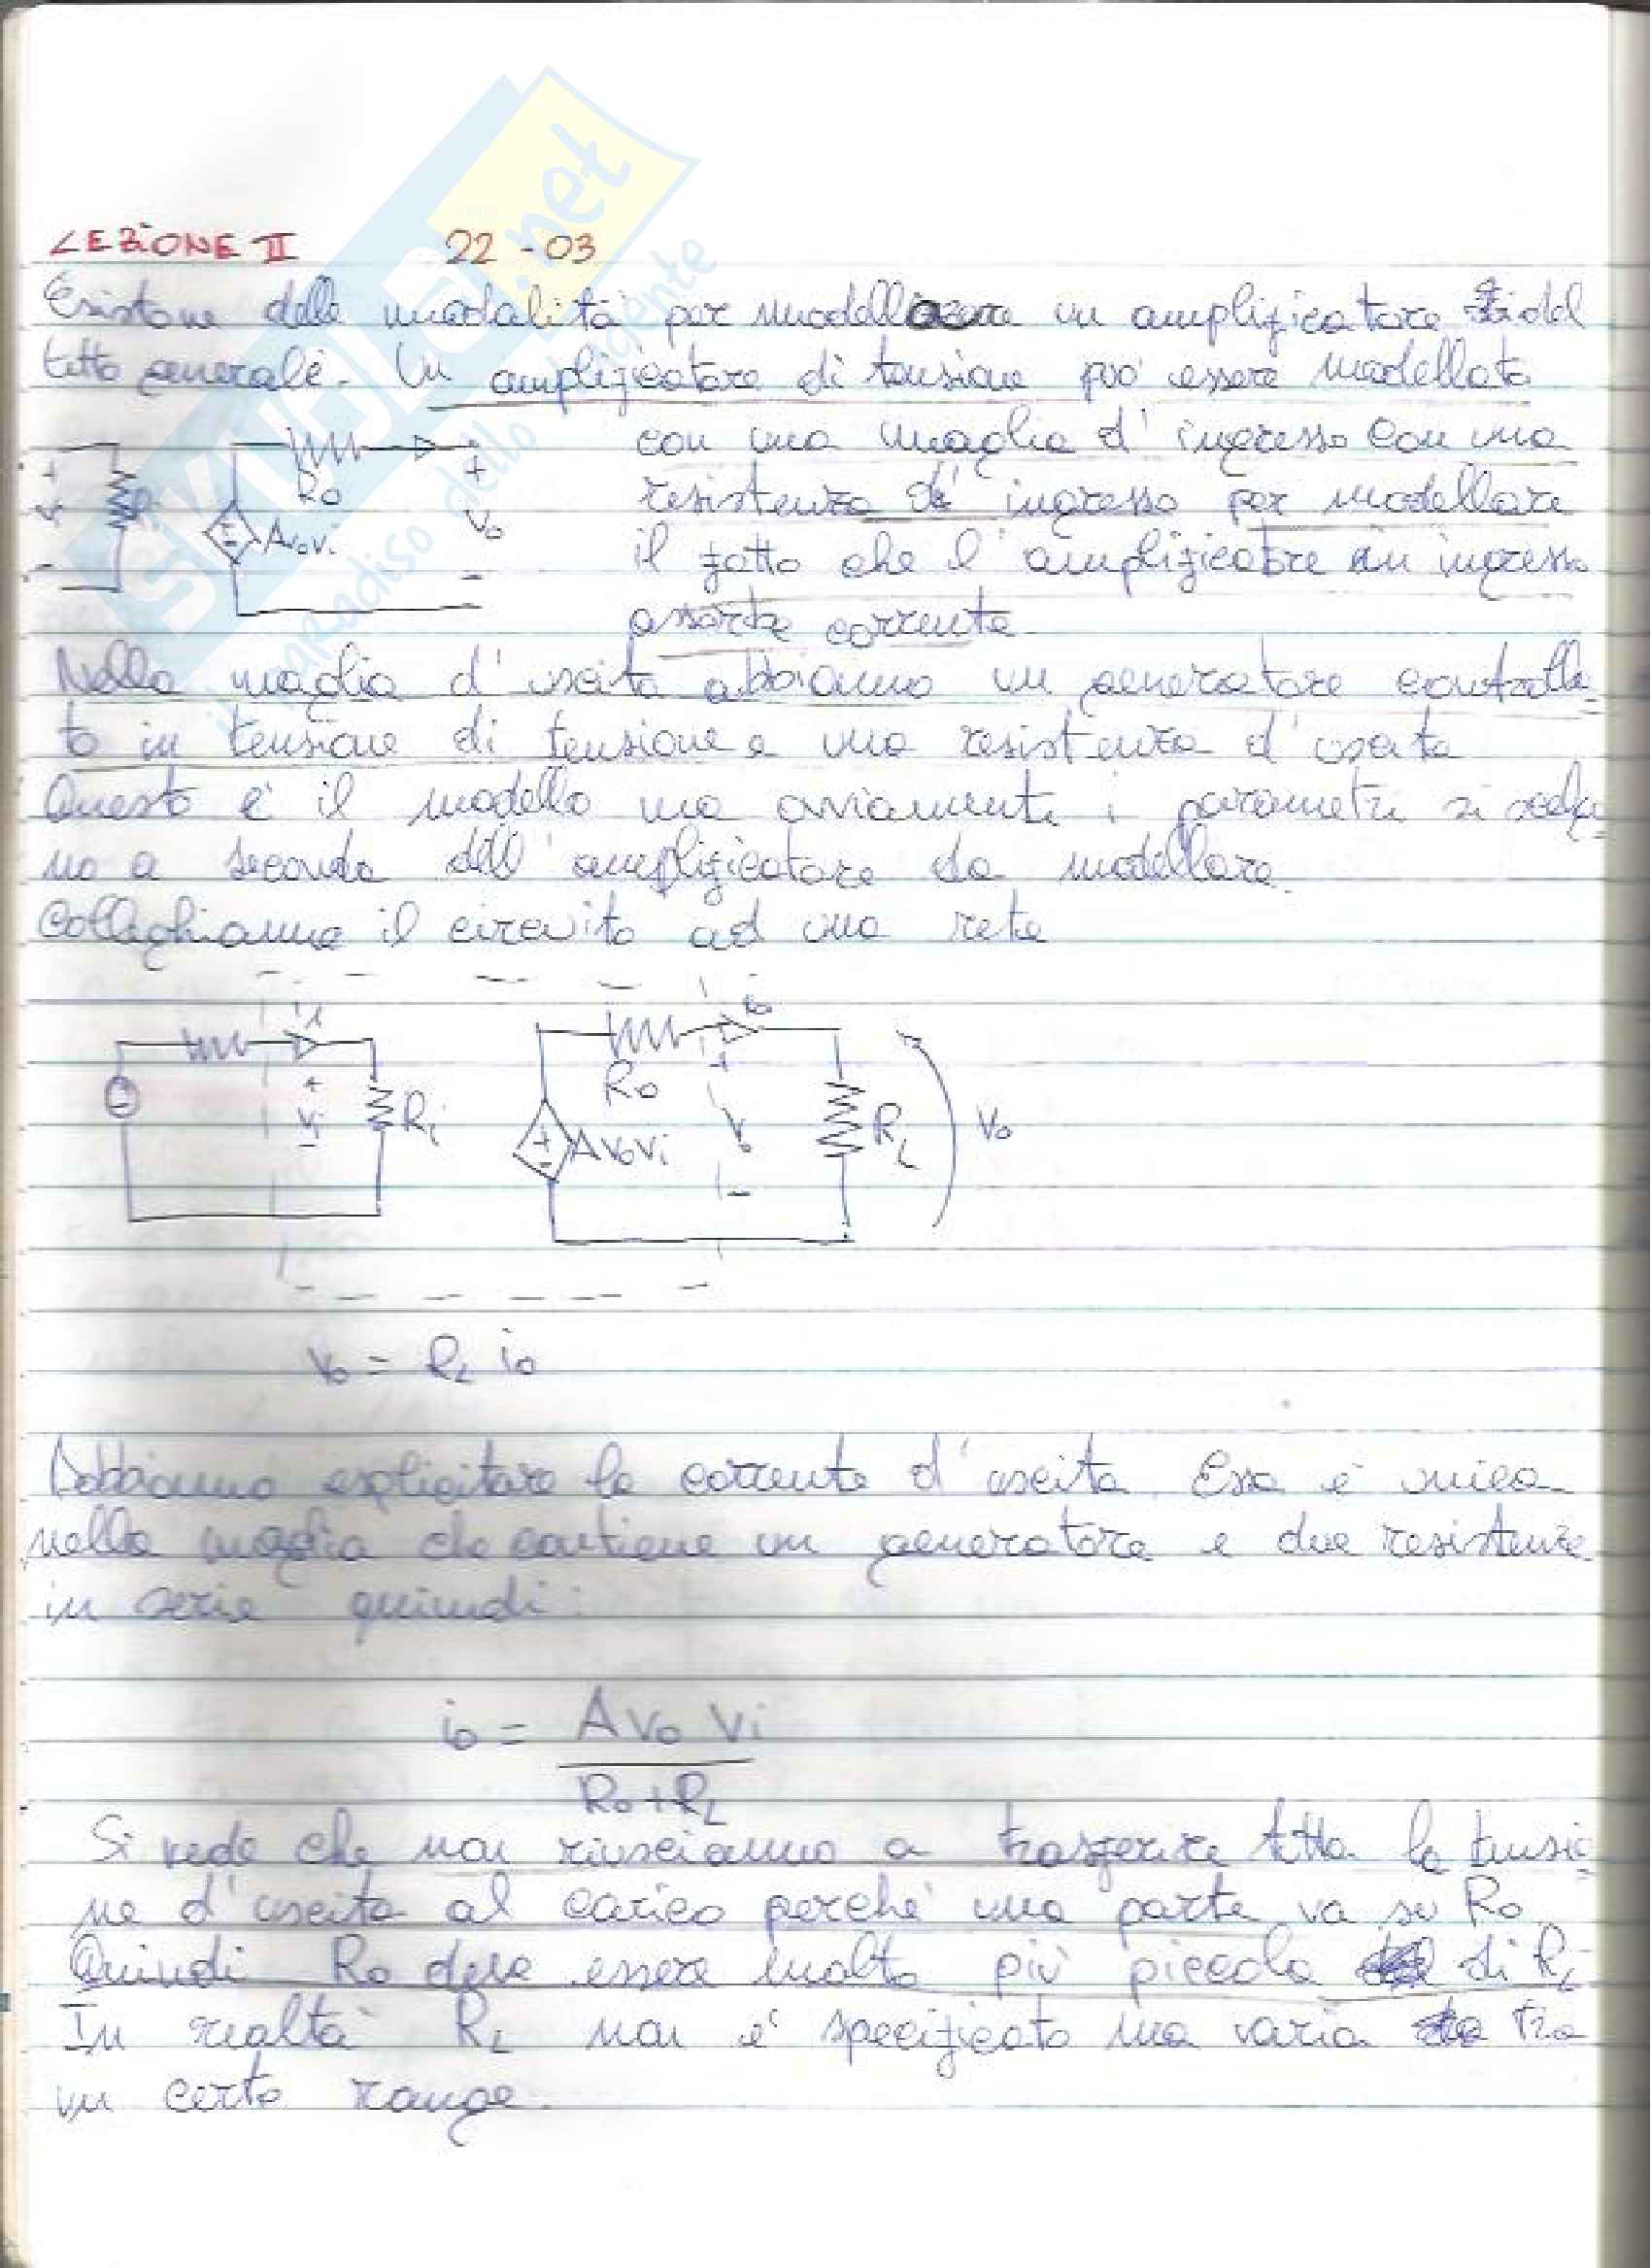 LEZIONE II 22-03
Esistono delle modalità per modellizzare un amplificatore del
tutto generale. Un amplificatore di tensione può essere modellato
con una maglia d'ingresso con una
resistenza d'ingresso per modellare
il fatto che l'amplificatore in ingresso
assorbe corrente.
+ Vi - Ri Ro Avovi + Vo -
Nella maglia d'uscita abbiamo un generatore controlla-
to in tensione di tensione e una resistenza d'uscita
Questo è il modello ma ovviamente i parametri si scelgo-
no a seconda dell'amplificatore da modellare.
Colleghiamo il circuito ad una rete
+ Vi - Ri Ro io
AvoVi + Vo - RL Vo
Vo = RL io
Dobbiamo esplicitare la corrente d'uscita. Essa è unica
nella maglia che contiene un generatore e due resistenze
in serie quindi:
io = Avo Vi
Ro+RL
Si vede che non riusciamo a trasferire tutta la tensio-
ne d'uscita al carico perché una parte va su Ro.
Quindi Ro deve essere molto più piccola di RL
In realtà RL non è specificato ma varia tra
un certo range.
skuola.net
il paradiso dello studente